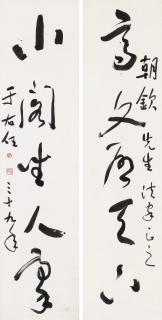 朝欽先生法家正之
高文天下
小閣坐人豪
于右任
三十九年